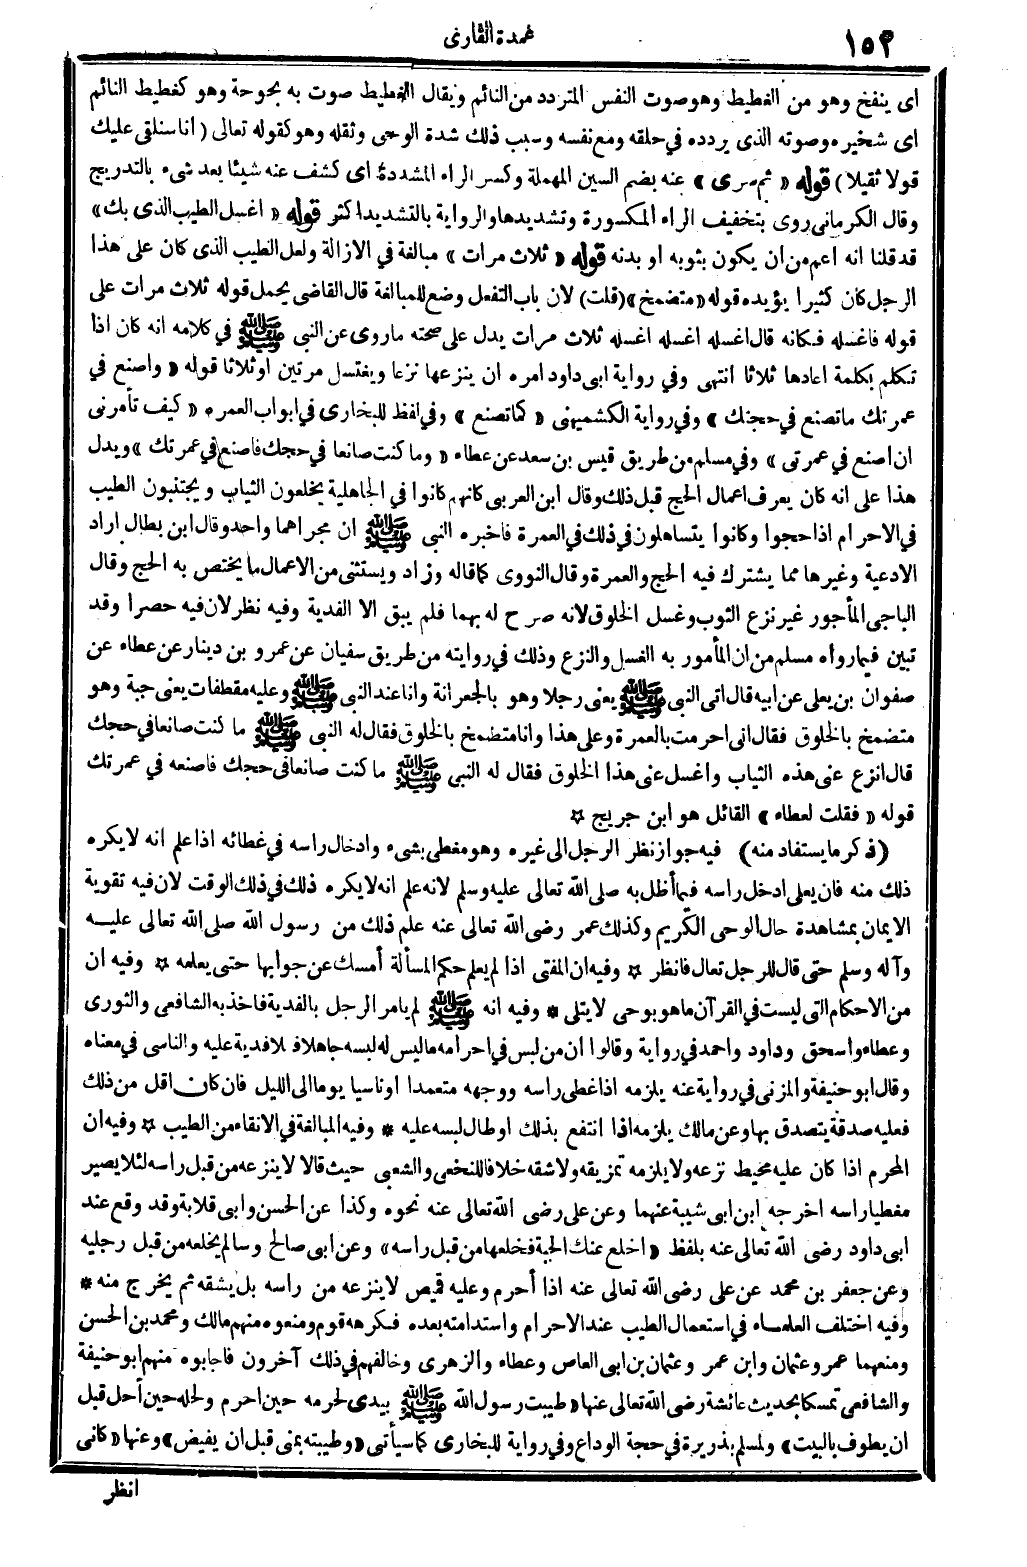 ١٥٣
عمدة القارى
اى ينفخ وهو من الغطيط وهوصوت النفس المتردد من النائم ويقال الغطيط صوت به بحوحة وهو كغطيط النائم
اى شخيره وصوته الذى يردده في حلقه ومع نفسه وسبب ذلك شدة الوحى وثقله وهو كقوله تعالى ( انا سنلقى عليك
قولا ثقيلا ) قوله « ثم سرى » عنه بضم السين المهملة وكسر الراء المشددة اى كشف عنه شيئا بعد شىء بالتدريج
وقال الكرمانى روى بتخفيف الراء المكسورة وتشديدها والرواية بالتشديد اكثر قوله « اغسل الطيب الذى بك »
قد قلنا انه اعم من ان يكون بثوبه او بدنه قوله « ثلاث مرات » مبالغة في الازالة ولعل الطيب الذى كان على هذا
الرجل كان كثيرا يؤيده قوله « متضمخ » (قلت) لان باب التفعل وضع للمبالغة قال القاضى يحمل قوله ثلاث مرات على
قوله فاغسله فكانه قال اغسله اغسله اغسله ثلاث مرات يدل على صحته ماروى عن النبى ﷺ في كلامه انه كان اذا
تكلم بكلمة اعادها ثلاثا انتهى وفي رواية ابى داود امره ان ينزعها نزعا ويغتسل مرتين اوثلاثا قوله « واصنع في
عمرتك ماتصنع في حجتك » وفي رواية الكشميهنى « كما تصنع » وفي لفظ للبخارى في ابواب العمره « كيف تأمرنى
ان اصنع في عمرتى » وفي مسلم من طريق قيس بن سعد عن عطاء « وما كنت صانعا في حجك فاصنع في عمرتك » ويدل
هذا على انه كان يعرف اعمال الحج قبل ذلك وقال ابن العربى كانهم كانوا في الجاهلية يخلعون الثياب ويجتنبون الطيب
في الاحرام اذا حجوا وكانوا يتساهلون في ذلك في العمرة فاخبره النبى ﷺ ان مجراهما واحد وقال ابن بطال اراد
الادعية وغيرها مما يشترك فيه الحج والعمرة وقال النووى كما قاله وزاد ويستثنى من الاعمال ما يختص به الحج وقال
الباجى المأجور غير نزع الثوب وغسل الخلوق لانه صرح له بهما فلم يبق الا الفدية وفيه نظر لان فيه حصرا وقد
تبين فيما رواه مسلم من ان المأمور به الغسل والنزع وذلك في روايته من طريق سفيان عن عمرو بن دينار عن عطاء عن
صفوان بن يعلى عن ابيه قال اتى النبى ﷺ يعنى رجلا وهو بالجعرانة وانا عند النبى ﷺ وعليه مقطعات يعنى جبة وهو
متضمخ بالخلوق فقال انى احرمت بالعمرة وعلى هذا وانا متضمخ بالخلوق فقال له النبى ﷺ ما كنت صانعا في حجك
قال انزع عنى هذه الثياب واغسل عنى هذا الخلوق فقال له النبى ﷺ ما كنت صانعا في حجك فاصنعه في عمرتك
قوله « فقلت لعطاء » القائل هو ابن جريج ☆
( ذكر ما يستفاد منه ) فيه جواز نظر الرجل الى غيره وهو مغطى بشىء وادخال راسه في غطائه اذا علم انه لايكره
ذلك منه فان يعلى ادخل راسه فيما أظل به صلى الله تعالى عليه وسلم لانه علم انه لايكره ذلك في ذلك الوقت لان فيه تقوية
الايمان بمشاهدة حال الوحى الكريم وكذلك عمر رضى الله تعالى عنه علم ذلك من رسول الله صلى الله تعالى عليه
وآله وسلم حتى قال للرجل تعال فانظر ☆ وفيه ان المفتى اذا لم يعلم حكم المسألة أمسك عن جوابها حتى يعلمه ☆ وفيه ان
من الاحكام التى ليست في القرآن ماهو بوحى لا يتلى * وفيه انه ﷺ لم يامر الرجل بالفدية فاخذ به الشافعى والثورى
وعطاء واسحق وداود واحمد في رواية وقالوا ان من لبس في احرامه ماليس له لبسه جاهلا فلا فدية عليه والناسى في معناه
وقال ابو حنيفة والمزنى في رواية عنه يلزمه اذا غطى راسه ووجهه متعمدا او ناسيا يوما الى الليل فان كان اقل من ذلك
فعليه صدقة يتصدق بها وعن مالك يلزمه اذا انتفع بذلك او طال لبسه عليه * وفيه المبالغة في الانقاء من الطيب ☆ وفيه ان
المحرم اذا كان عليه مخيط نزعه ولا يلزمه تمزيقه ولا شقه خلافا للنخعى والشعبى حيث قالا لا ينزعه من قبل راسه لئلا يصير
مغطيا راسه اخرجه ابن ابى شيبة عنهما وعن على رضى الله تعالى عنه نحوه وكذا عن الحسن وابى قلابة وقد وقع عند
ابى داود رضى الله تعالى عنه بلفظ « اخلع عنك الجبة فخلعها من قبل راسه » وعن ابى صالح وسالم يخلعه من قبل رجليه
وعن جعفر بن محمد عن على رضى الله تعالى عنه اذا أحرم وعليه قميص لاينزعه من راسه بل يشقه ثم يخرج منه *
وفيه اختلف العلماء في استعمال الطيب عند الاحرام واستدامته بعده فكرهه قوم ومنعوه منهم مالك ومحمد بن الحسن
ومنعهما عمر وعثمان وابن عمر وعثمان بن ابى العاص وعطاء والزهرى وخالفهم في ذلك آخرون فاجابوه منهم ابو حنيفة
والشافعى تمسكا بحديث عائشة رضى الله تعالى عنها « طيبت رسول الله ﷺ بيدى لحرمه حين احرم ولحله حين أحل قبل
ان يطوف بالبيت » ولمسلم بذريرة في حجة الوداع وفي رواية للبخارى كما سيأتى « وطيبته بمنى قبل ان يفيض » وعنها « كانى
انظر